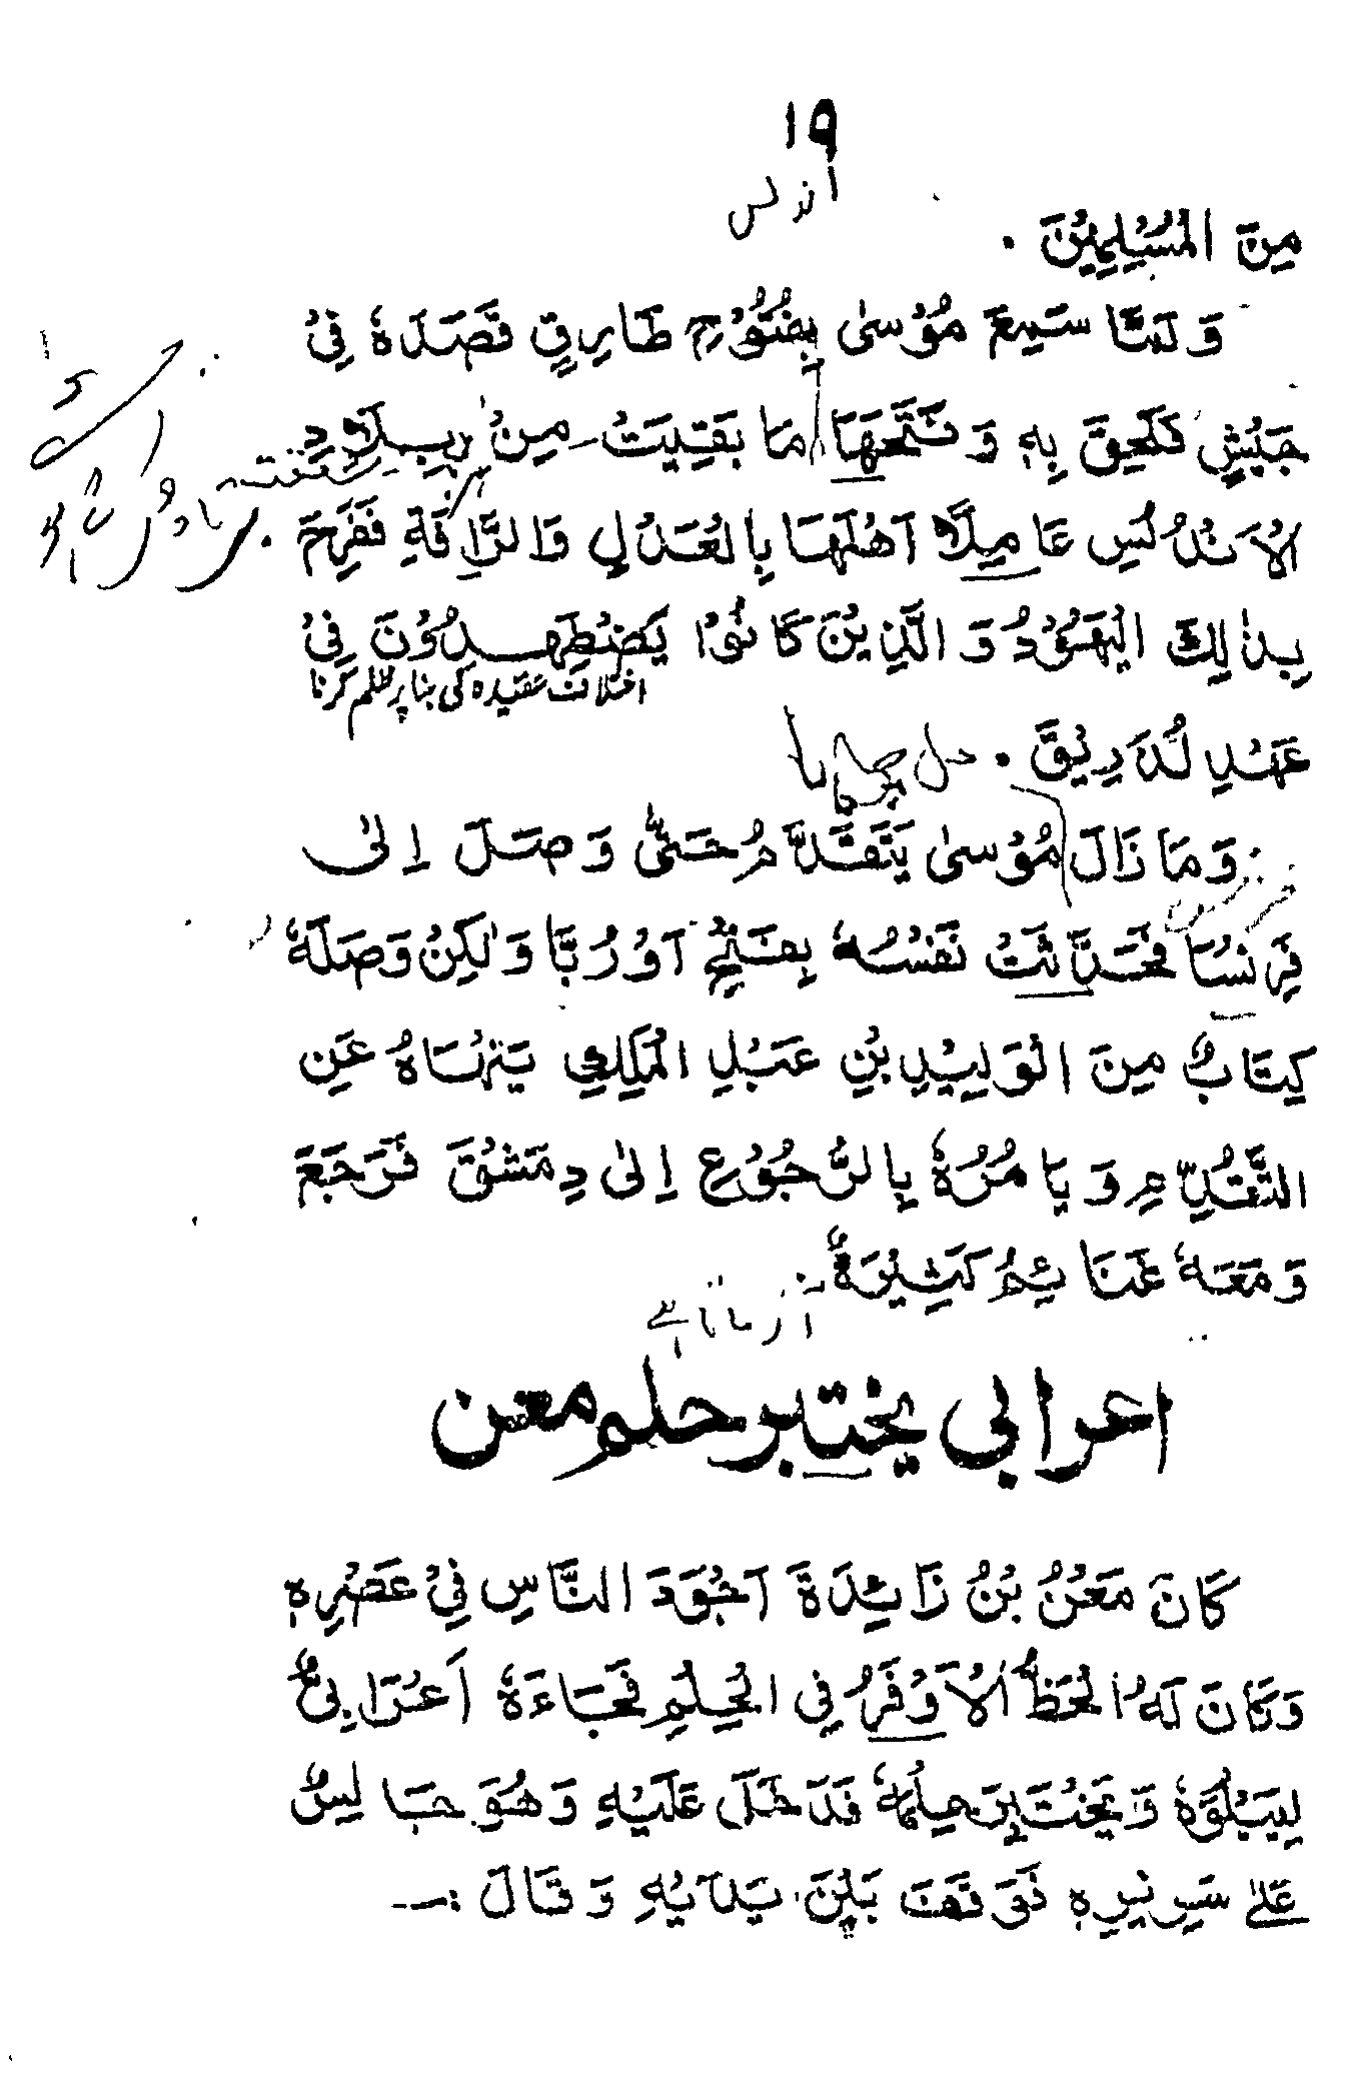 ١٩
اندلس
مِنَ الْمُسْلِمِيْنَ ۰
وَلَمَّا سَمِعَ مُوْسىٰ بِفُتُوْحِ طَارِقٍ قَصَدَهٗ فِيْ
جَيْشٍ فَلَحِقَ بِهٖ وَفَتَحَهَا مَا بَقِيَتْ مِنْ بِلَادِ
الْاَنْدُلُسِ عَامِلًا اَهْلَهَا بِالْعَدْلِ وَالرَّافَةِ فَفَرِحَ ۰
بِذٰلِكَ الْيَهُوْدُ وَالَّذِيْنَ كَانُوْا يَضْطَهِدُوْنَ فِيْ
اختلاف عقیدہ کی بنا پر ظلم کرنا
عَهْدِ لُذَرِيْقَ ۰
وَمَا زَالَ مُوْسىٰ يَتَقَدَّمُ حَتّٰى وَصَلَ اِلىٰ
فِرَنْسَا فَحَدَّثَتْ نَفْسُهٗ بِفَتْحِ اَوْرُبَّا وَلٰكِنْ وَصَلَهٗ
كِتَابٌ مِنَ الْوَلِيْدِ بْنِ عَبْدِ الْمَلِكِ يَنْهَاهُ عَنِ
التَّقَدُّمِ وَيَامُرُهٗ بِالرُّجُوْعِ اِلىٰ دِمَشْقَ فَرَجَعَ
وَمَعَهٗ غَنَائِمُ كَثِيْرَةٌ ۰
آزماتا ہے
اعرابي يختبر حلم معن
كَانَ مَعْنُ بْنُ زَائِدَةَ اَجْوَدَ النَّاسِ فِيْ عَصْرِهٖ
وَكَانَ لَهُ الْحَظُّ الْاَوْفَرُ فِي الْحِلْمِ فَجَاءَهٗ اَعْرَابِيٌّ
لِيَبْلُوَهٗ وَيَخْتَبِرَ حِلْمَهٗ فَدَخَلَ عَلَيْهِ وَهُوَ جَالِسٌ
عَلىٰ سَرِيْرِهٖ فَوَقَفَ بَيْنَ يَدَيْهِ وَقَالَ :—